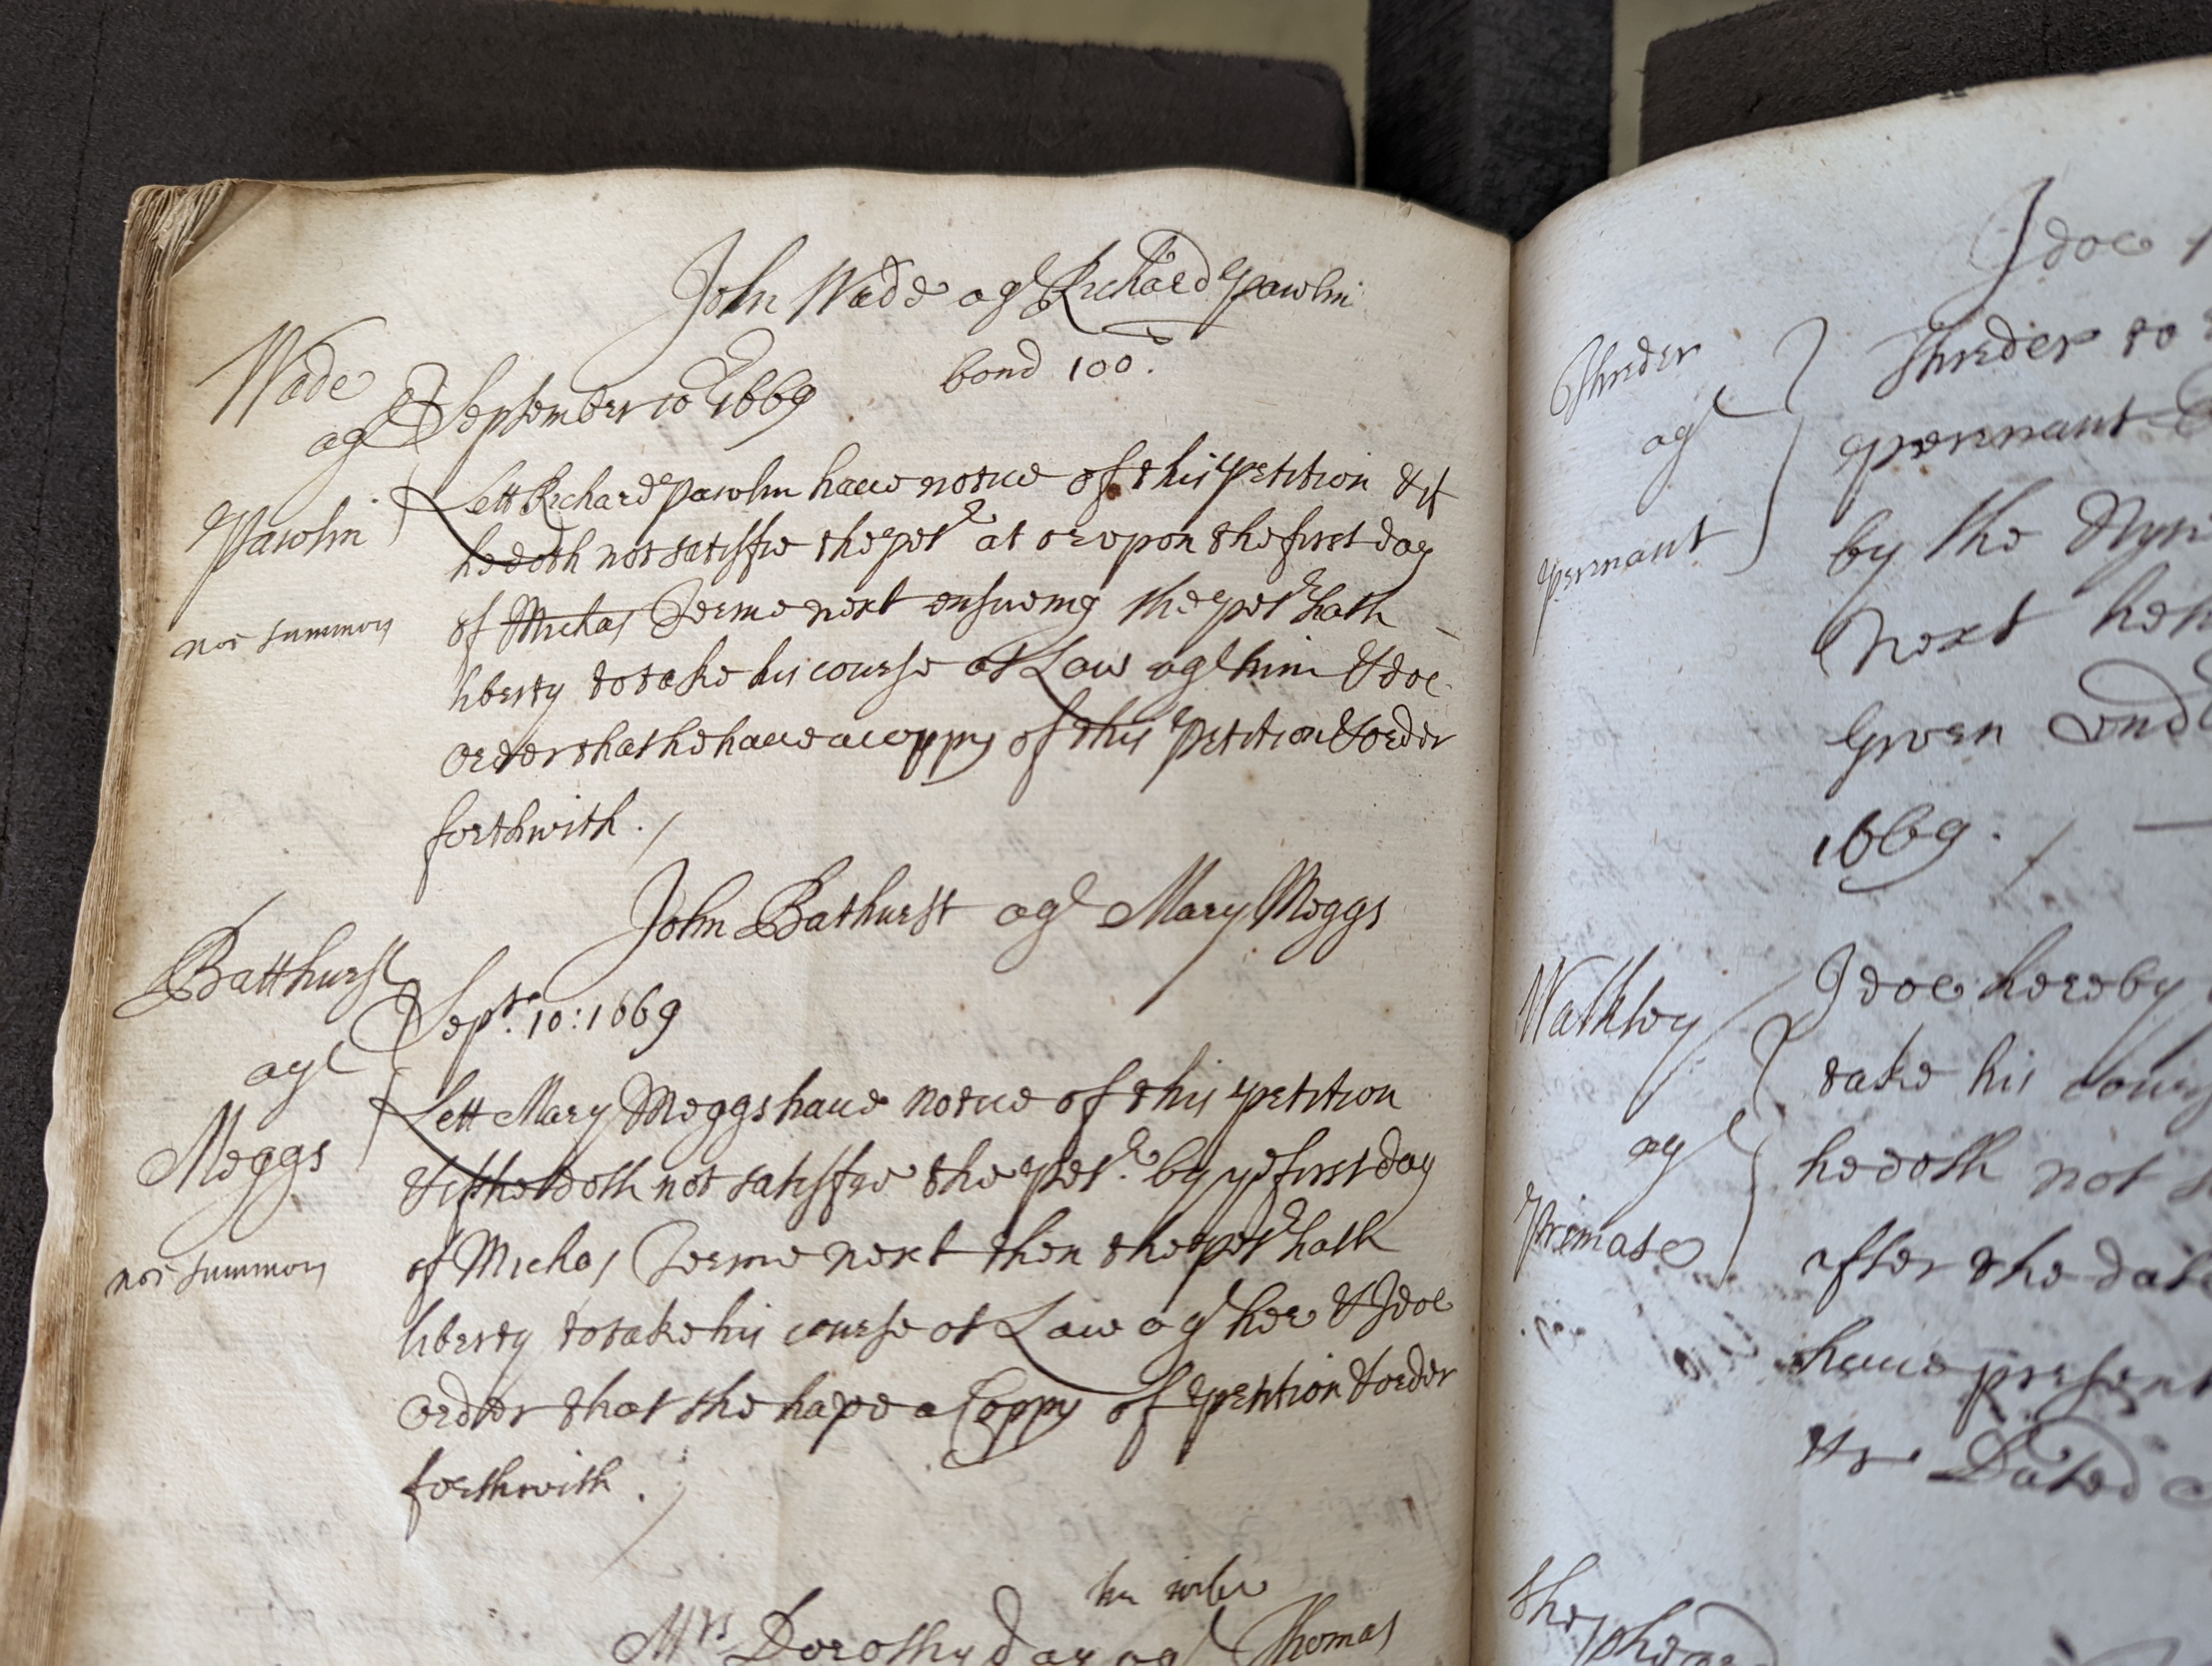 John Wade agt Richard Pawlin
bond 100
Wade
agt
Pawlin
not summon
September 10 1669
Lett Richard Pawlin haue notice of this petition & if
he doth not satisfie the petr at or vpon the first day
of Michas Terme next ensueing the petr hath
liberty to take his course at Law agt him & doe
order that he haue a coppy of this petition & order
forthwith.
John Bathurst agt Mary Meggs
Batthurst
agt
Meggs
not summon
Sept. 10: 1669
Lett Mary Meggs haue notice of this petition
& if she doth not satisfye the petr. by ye first day
of Michas Terme next then the petr hath
liberty to take his course at Law agt her & I doe
order that she have a Coppy of petition & order
forthwith.
his wife
Mrs Dorothy Day agt Thomas
I doe
Shreder
agt
Pennant
Shreder to
Pennant
by the
Next
Given
1669.
Walkley
agt
Primate
I doe hereby
take his
he doth not
after the
haue present
Dated